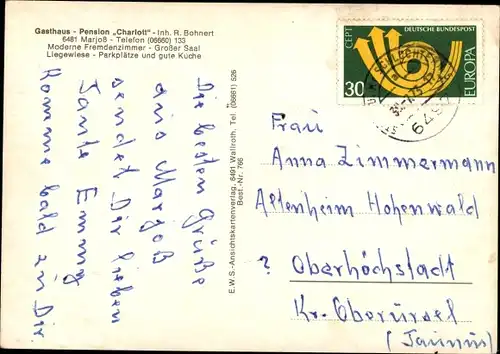 Gasthaus - Pension „Charlott" - Inh. R. Bohnert
6481 Marjoß - Telefon (06660) 133
Moderne Fremdenzimmer - Großer Saal
Liegewiese - Parkplätze und gute Küche
CEPT DEUTSCHE BUNDESPOST
30
EUROPA
Die besten Grüße
aus Marjoß
sendet Dir lieben
Tante Emmy
Komme bald zu Dir.
E.W.S.-Ansichtskartenverlag, 6491 Wallroth, Tel. (06661) 526
Best.-Nr. 766
Frau
Anna Zimmermann
Altenheim Hohenwald
? Oberhöchstadt
Kr. Oberursel
(Taunus)